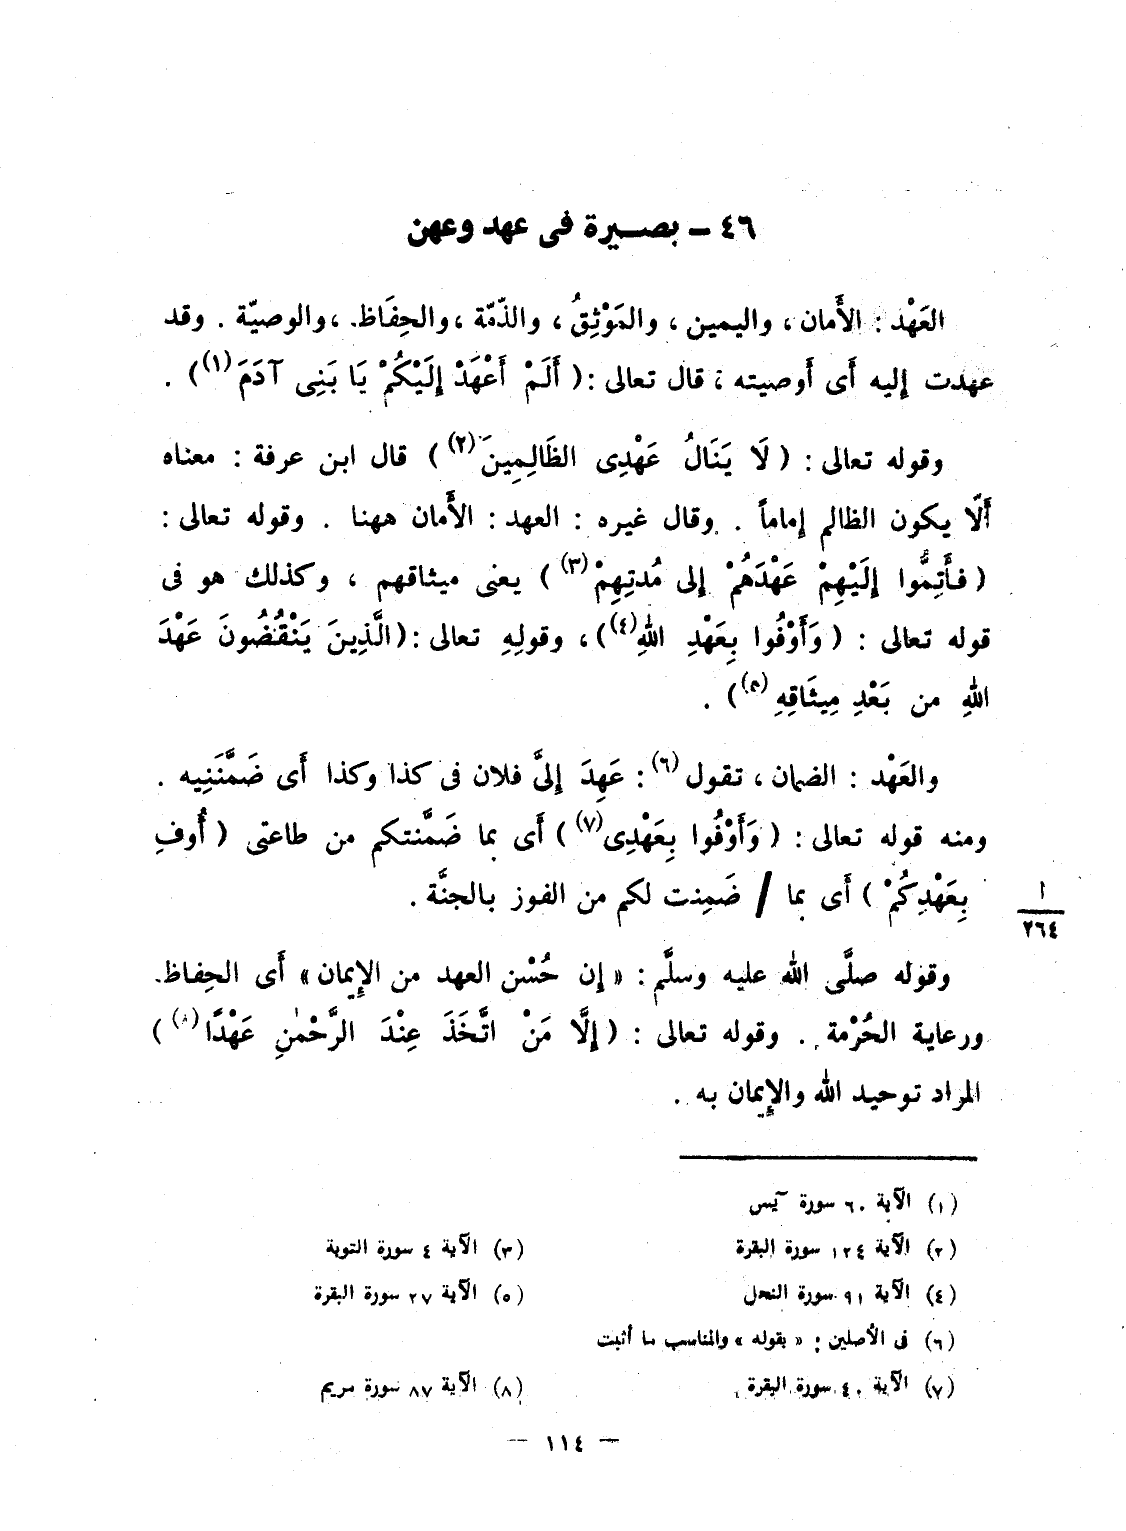 ٤٦ – بصيرة فى عهد وعهن
العَهْد : الأَمان ، واليمين ، والمَوْثِقُ ، والذّمّة ، والحِفَاظ ، والوصيّة . وقد
عهدت إليه أى أوصيته ؛ قال تعالى : ( أَلَمْ أَعْهَدْ إِلَيْكُمْ يَا بَنِى آدَمَ (١) ) .
وقوله تعالى : ( لَا يَنَالُ عَهْدِى الظَالِمِينَ (٢) ) قال ابن عرفة : معناه
أَلّا يكون الظالم إماماً . وقال غيره : العهد : الأَمان ههنا . وقوله تعالى :
( فأَتِمُّوا إِلَيْهِمْ عَهْدَهُمْ إلى مُدتِهِمْ (٣) ) يعنى ميثاقهم ، وكذلك هو فى
قوله تعالى : ( وَأَوْفُوا بِعَهْدِ اللهِ (٤) ) ، وقولِهِ تعالى : ( الَّذِينَ يَنْقُضُونَ عَهْدَ
اللهِ من بَعْدِ مِيثَاقِهِ (٥) ) .
والعَهْد : الضمان ، تقول (٦) : عَهِدَ إِلىَّ فلان فى كذا وكذا أَى ضَمَّنَنِيه .
ومنه قوله تعالى : ( وَأَوْفُوا بِعَهْدِى (٧) ) أَى بما ضَمَّنتكم من طاعتى ( أُوفِ
بِعَهْدِكُمْ ) أَى بما / ضَمِنت لكم من الفوز بالجنَّة .
١
٢٦٤
وقوله صلَّى الله عليه وسلَّم : « إن حُسْن العهد من الإِيمان » أَى الحِفاظ
ورعاية الحُرْمة . وقوله تعالى : ( إِلَّا مَنْ اتَّخَذَ عِنْدَ الرَّحْمٰنِ عَهْدًا (٨) )
المراد توحيد الله والإِيمان به .
(١) الآية ٦٠ سورة يٓس
(٢) الآية ١٢٤ سورة البقرة
(٣) الآية ٤ سورة التوبة
(٤) الآية ٩١ سورة النحل
(٥) الآية ٢٧ سورة البقرة
(٦) فى الأصلين : « بقوله » والمناسب ما أثبت
(٧) الآية ٤٠ سورة البقرة
(٨) الآية ٨٧ سورة مريم
— ١١٤ —